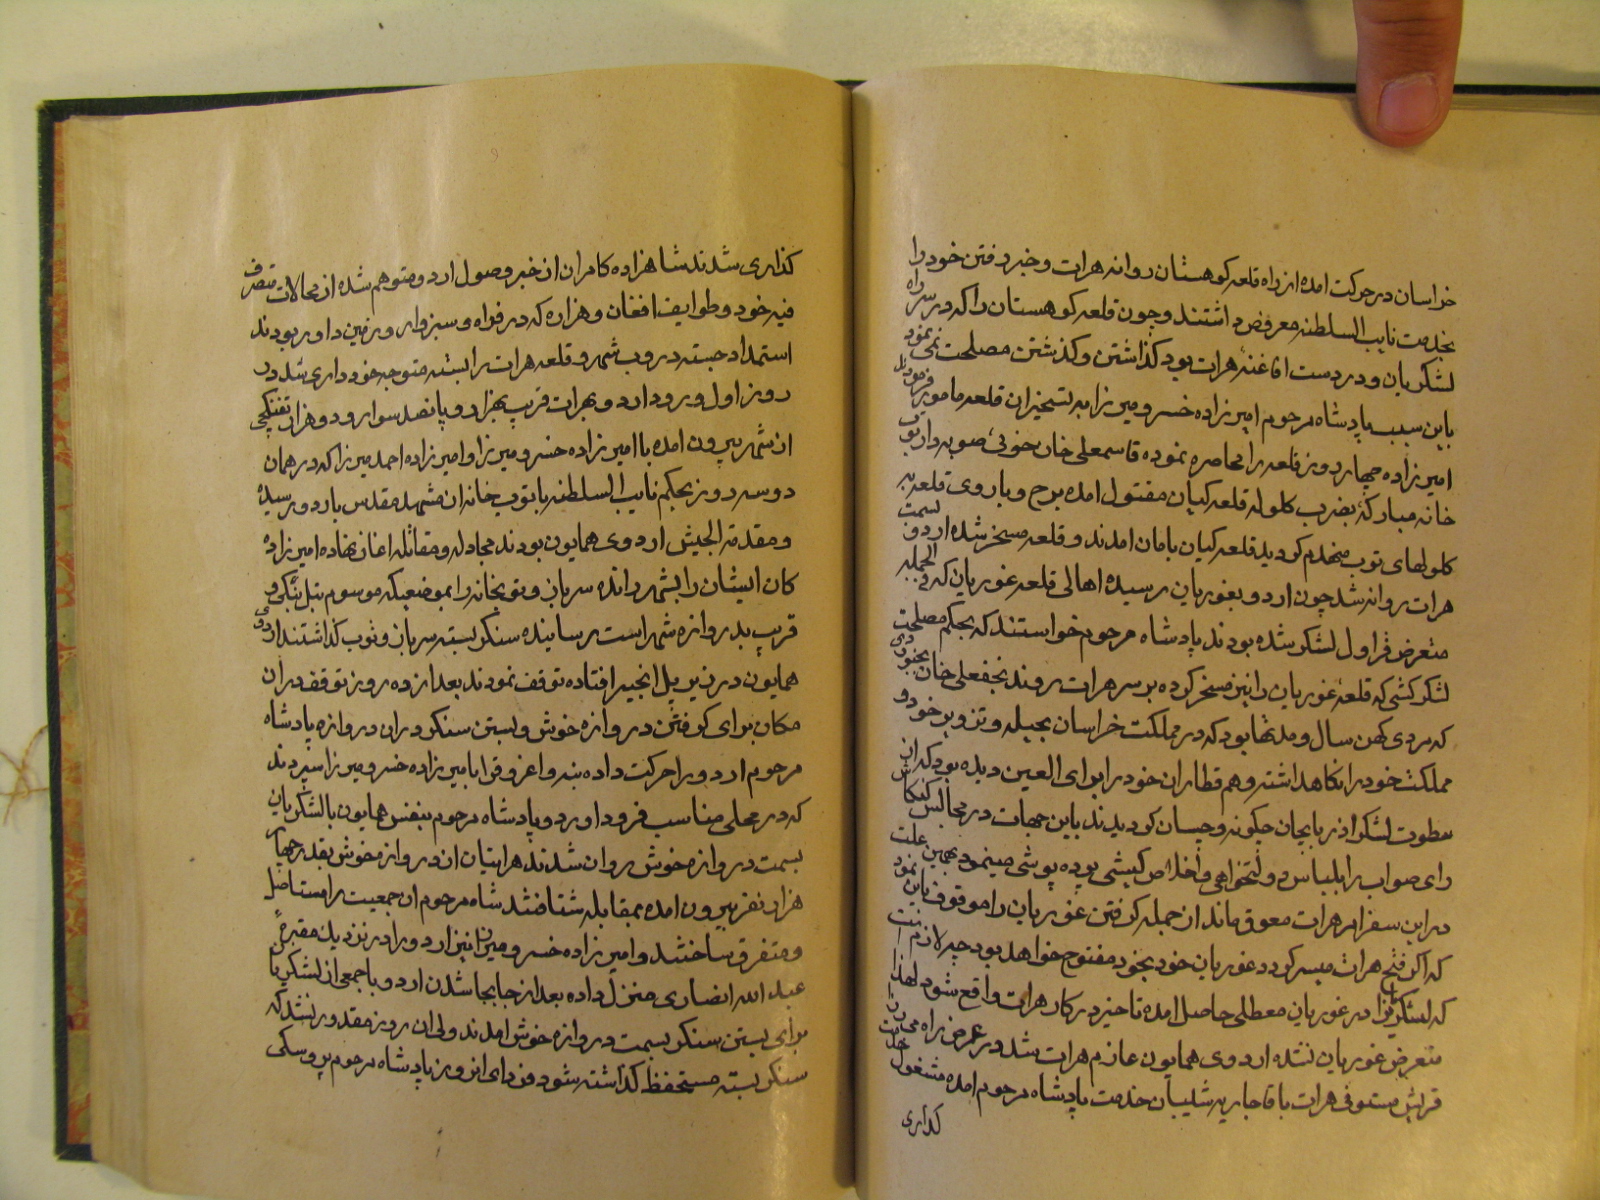 خراسان در حرکت امده از راه قلعه کوهستان روانه هرات و خبر رفتن خود را
بخدمت نایب السلطنه معروض داشتند و چون قلعه کوهستان را که در سر راه
لشکریان و در دست افاغنهٔ هرات بود کذاشتن و کذشتن مصلحت نمی نمود
باین سبب پادشاه مرحوم امیرزاده خسرو میرزا به تسخیر ان قلعه مامور فرمودند
امیرزاده چهار روز قلعه را محاصره نموده قاسمعلی خان خوئی صوبه دار توپ
خانه مبارکه بضرب کلوله قلعه کیان مفتول امده برج و باروی قلعه به
کلولهای توپ منهدم کردید قلعه کیان بامان امدند و قلعه مسخر شده اردو بسمت
هرات روانه شد چون اردو بغوریان رسیده اهالی قلعه غوریان که فی الجمله
متعرض قراول لشکر شده بودند پادشاه مرحوم خواستند که بحکم مصلحت
لشکرکشی که قلعهٔ غوریان را نیز مسخر کرده بر سر هرات روند نجفعلی خان بجنوردی
که مردی کهن سال و مدتها بود که در مملکت خراسان بحیله و تزویر خود و
مملکت خود را نکاهداشته و هم قطاران خود را برای العین دیده بود که از
سطوت لشکر اذربایجان چکونه و چسان کردیدند باین جهات در مجالس کنکاش
رای صواب را بلباس دولتخواهی و اخلاص کیشی پرده پوشی مینمود بهمین علت
در این سفر امر هرات معوق ماند از جمله کرفتن غوریان را موقوف باین نمود
که اکر فتح هرات میسر کردد غوریان خود بخود مفتوح خواهد بود چه لازم است
که لشکریانرا در غوریان معطلی حاصل امده تاخیر در کار هرات واقع شود لهذا
متعرض غوریان نشده اردوی همایون عازم هرات شد و در عرض راه
قریش مستوفی هرات با قاجاریه شلیبان خدمت پادشاه مرحوم امده مشغول خدمت
کذاری
کذاری شدند شاهزاده کامران از خبر وصول اردو متوهم شده از محالات متصرف
فیه خود و طوایف افغان و هزاره که در فراه و سبزوار و زمین داور بودند
استمداد جسته دروب شهر و قلعه هرات را بسته متوجه خودداری شد در
روز اول ورود اردو بهرات قریب بهزار و پانصد سوار و دو هزار تفنکچی
از شهر بیرون امده با امیرزاده خسرو میرزا و امیرزاده احمد میرزا که در همان
دو سه روز بحکم نایب السلطنه با توپ خانه از مشهد مقدس باردو رسیده
و مقدمة الجیش اردوی همایون بودند مجادله و مقاتله اغاز نهاده امیرزاده
کان ایشان را بشهر رانده سرباز و توپخانه را بموضعیکه موسوم بتل بنکی و
قریب بدروازه شهر است رسانیده سنکر بسته سرباز و توپ کذاشتند اردوی
همایون در نزد پل انجیر افتاده توقف نمودند بعد از ده روز توقف در ان
مکان برای کرفتن دروازه خوش و بستن سنکر در ان دروازه پادشاه
مرحوم اردو را حرکت داده بنه و اغروق را بامیرزاده خسرو میرزا سپردند
که در محلی مناسب فرود اورد و پادشاه مرحوم بنفس همایون با لشکریان
بسمت دروازه خوش روان شدند هراتیان از دروازه خوش بقدر چهار
هزار نفر بیرون امده بمقابله شتافتند شاه مرحوم ان جمعیت را مستاصل
و متفرق ساختند و امیرزاده خسرو میرزا نیز اردو را در نزدیک مقبرهٔ
عبد الله انصاری منزل داده بعد از جابجا شدن اردو با جمعی از لشکریان
برای بستن سنکر بسمت دروازه خوش امدند ولی ان روز مقدور نشد که
سنکر بسته مستحفظ کذاشته شود فردای انروز پادشاه مرحوم